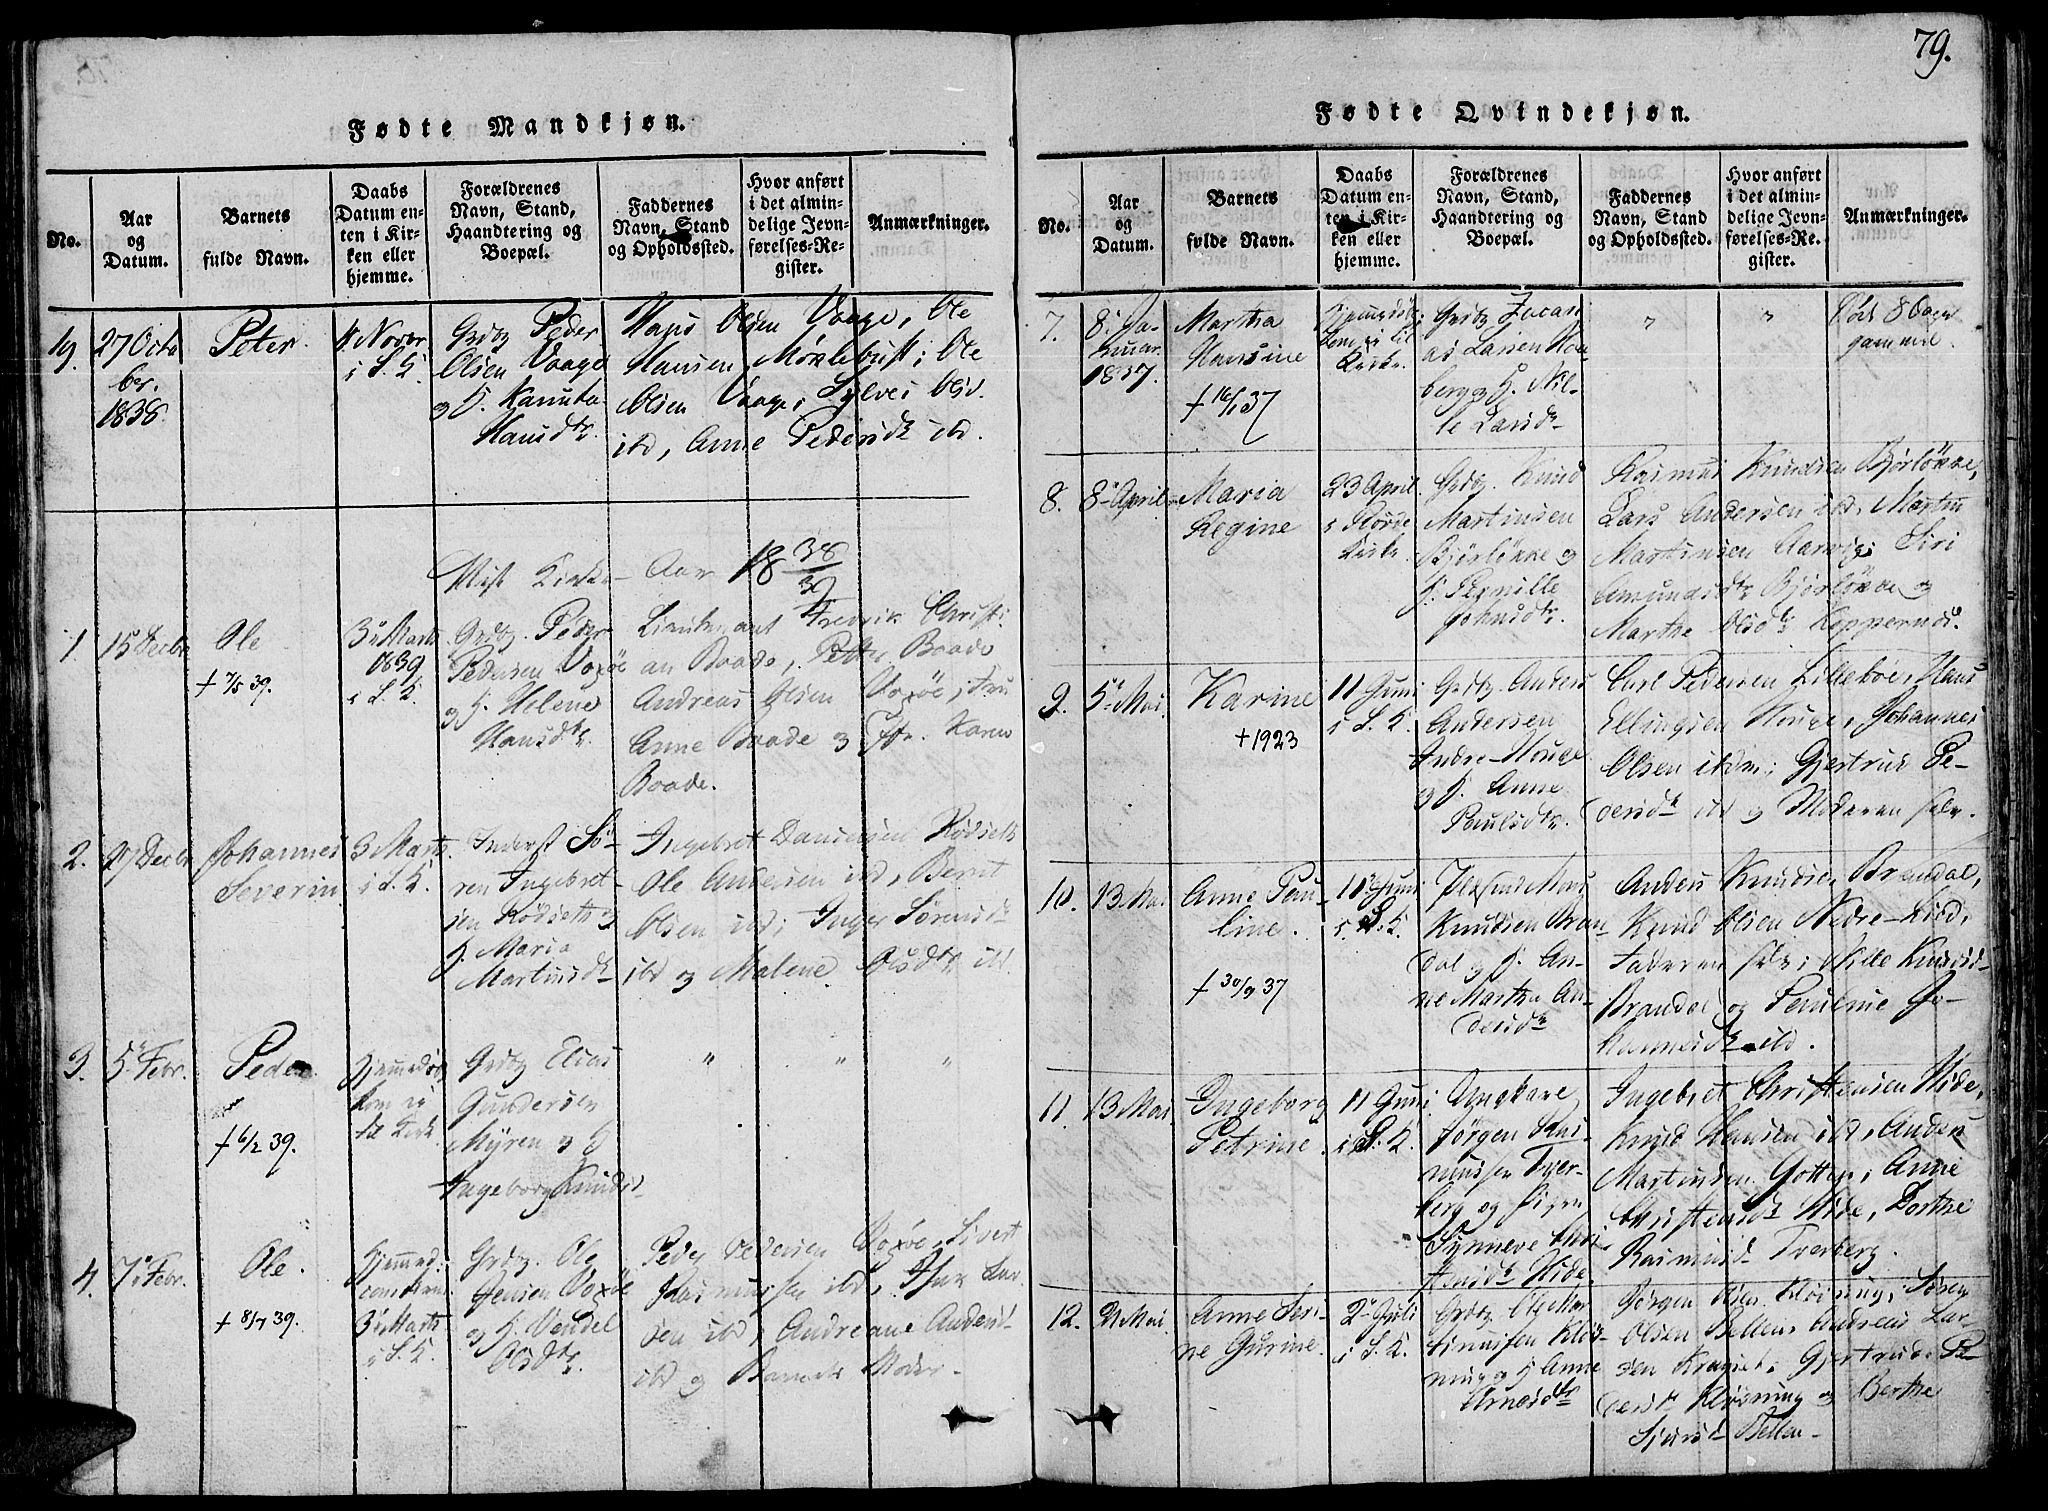 79.
Fødte Mandkjøn.
No.
Aar
og
Datum.
Barnets
fulde Navn.
Daabs
Datum en-
ten i Kir-
ken eller
hjemme.
Forældrenes
Navn, Stand,
Haandtering og
Boepæl.
Faddernes
Navn, Stand
og Opholdssted.
Hvor anført
i det almin-
delige Jevn-
førelses-Re-
gister.
Anmærkninger.
19.
27 Octo
ber.
1838.
Peter
4 Novbr
i S. K.
Grdbg Peder
Olsen Vaage
og H. Hanna
Hansdtr.
Hans Olsen Vaage, Ole
Hansen Möklebust, Ole
Olsen Vaage, Sylvei Olsd.
ibd, Anne Pedersdtr ibd.
Kirke-Aar 18 38/39
1.
15 Decbr
Ole
+ 7/5 39.
3 Marts
1839
i S. K.
Grdbg. Peder
Pedersen Voxöe
og H. Helene
Hansdtr.
Lieutenant Fredrik Christi
an Baade, Petter Baade
Andreas Olsen Voxöe, Fru
Anne Baade og Karen
Baade.
2.
27 Decbr
Johannes
Severin
3 Marts
i S. K.
Inderst Sö-
ren Ingebret-
sen Rödseth og
H. Maria
Martinsdtr
Ingebret Danielsen Rödseth
Ole Andersen ibd, Berit
Olsen ibd, Inger Sörensdtr
ibd og Malene Olsdtr ibd.
3.
5 Febr.
Peder
+ 6/2 39.
Hjemmedöbt
kom ei
til Kirke
Grdbg Elias
Gundersen
Myren og H
Ingeborg Knudsd
"
"
"
4.
7 Febr.
Ole.
+ 8/7 39.
Hjemmed.
3 Marts
i S. K.
Grdbg. Ole
Jensen Voxöe
og H. Vendel
Olsdtr.
Peder Pedersen Voxöe, Sivert
Rasmussen ibd, Lar
sen ibd, Andreane Andersd
ibd og Barnets Moder.
Fødte Qvindekjøn.
No.
Aar
og
Datum.
Barnets
fulde Navn.
Daabs
Datum en-
ten i Kir-
ken eller
hjemme.
Forældrenes
Navn, Stand,
Haandtering og
Boepæl.
Faddernes
Navn, Stand
og Opholdssted.
Hvor anført
i det almin-
delige Jevn-
førelses-Re-
gister.
Anmærkninger.
7.
8 Ja-
nuar
1837.
Martha
Hansine
+ 16/1 37
Hjemmedöbt
kom ei til
Kirke.
Grdbg Zacari
as Larsen Hou
berg og H. Nil-
le Larsdtr
"
"
Död 8 Dage
gammel.
8.
8 April
Maria
Regine
23 April
i Rörde
Kirke
Grdbg. Knud
Martinsen
Björlökke og
H. Pernille
Johnsdtr.
Rasmus Knudsen Björlökke,
Lars Andersen ibd, Martin
Martinsen Aarvig, Siri
Amundsdtr Björlökke og
Marthe Olsdtr Koppernes.
9.
5 Mai
Karine
+ 1923
11 Juni
i S. K.
Grdbg. Anders
Andersen
Indre-Houge
og H. Anne
Paulsdtr.
Carl Pedersen Lilleböe, Hans
Ellingsen Houge, Johannes
Olsen ibdm, Gjertrud Pe-
dersdtr ibd og Moderen selv.
10.
13 Mai
Anne Pau-
line.
+ 30/9 37
11 Juni
i S. K.
Knudsen Bran-
dal og H. An-
ne Martha An-
dersdtr
Anders Knudsen Brandal,
Knud Olsen Nedre-Liöd,
Faderen selv, Nille Knudsd
Brandal og Pauline Jo-
hannesdtr ibd.
11.
13 Mai
Ingeborg
Petrine.
11 Juni
i S. K.
Ungkarl
Jörgen Ras-
mussen Tver-
berg og Pigen
Synneve Chri
stensdtr Hide
Ingebret Christensen Hide,
Knud Hansen ibd, Anders
Martinsen Anne
Christensdtr Hide, Dorthe
Rasmusd. Tverberg.
12.
Mai
Anne Seri-
ne Gurine.
2 Juli
i S. K.
Grdbg Ole Mar
tinussen Klöv-
ning og H Anne
Arnesdtr
Jörgen Olsen Klövning, Sören
Olsen Bellen, Andreas Lar
sen Gjertrud Pe-
dersdtr Klövning og Berthe
Sjursd Bellen.